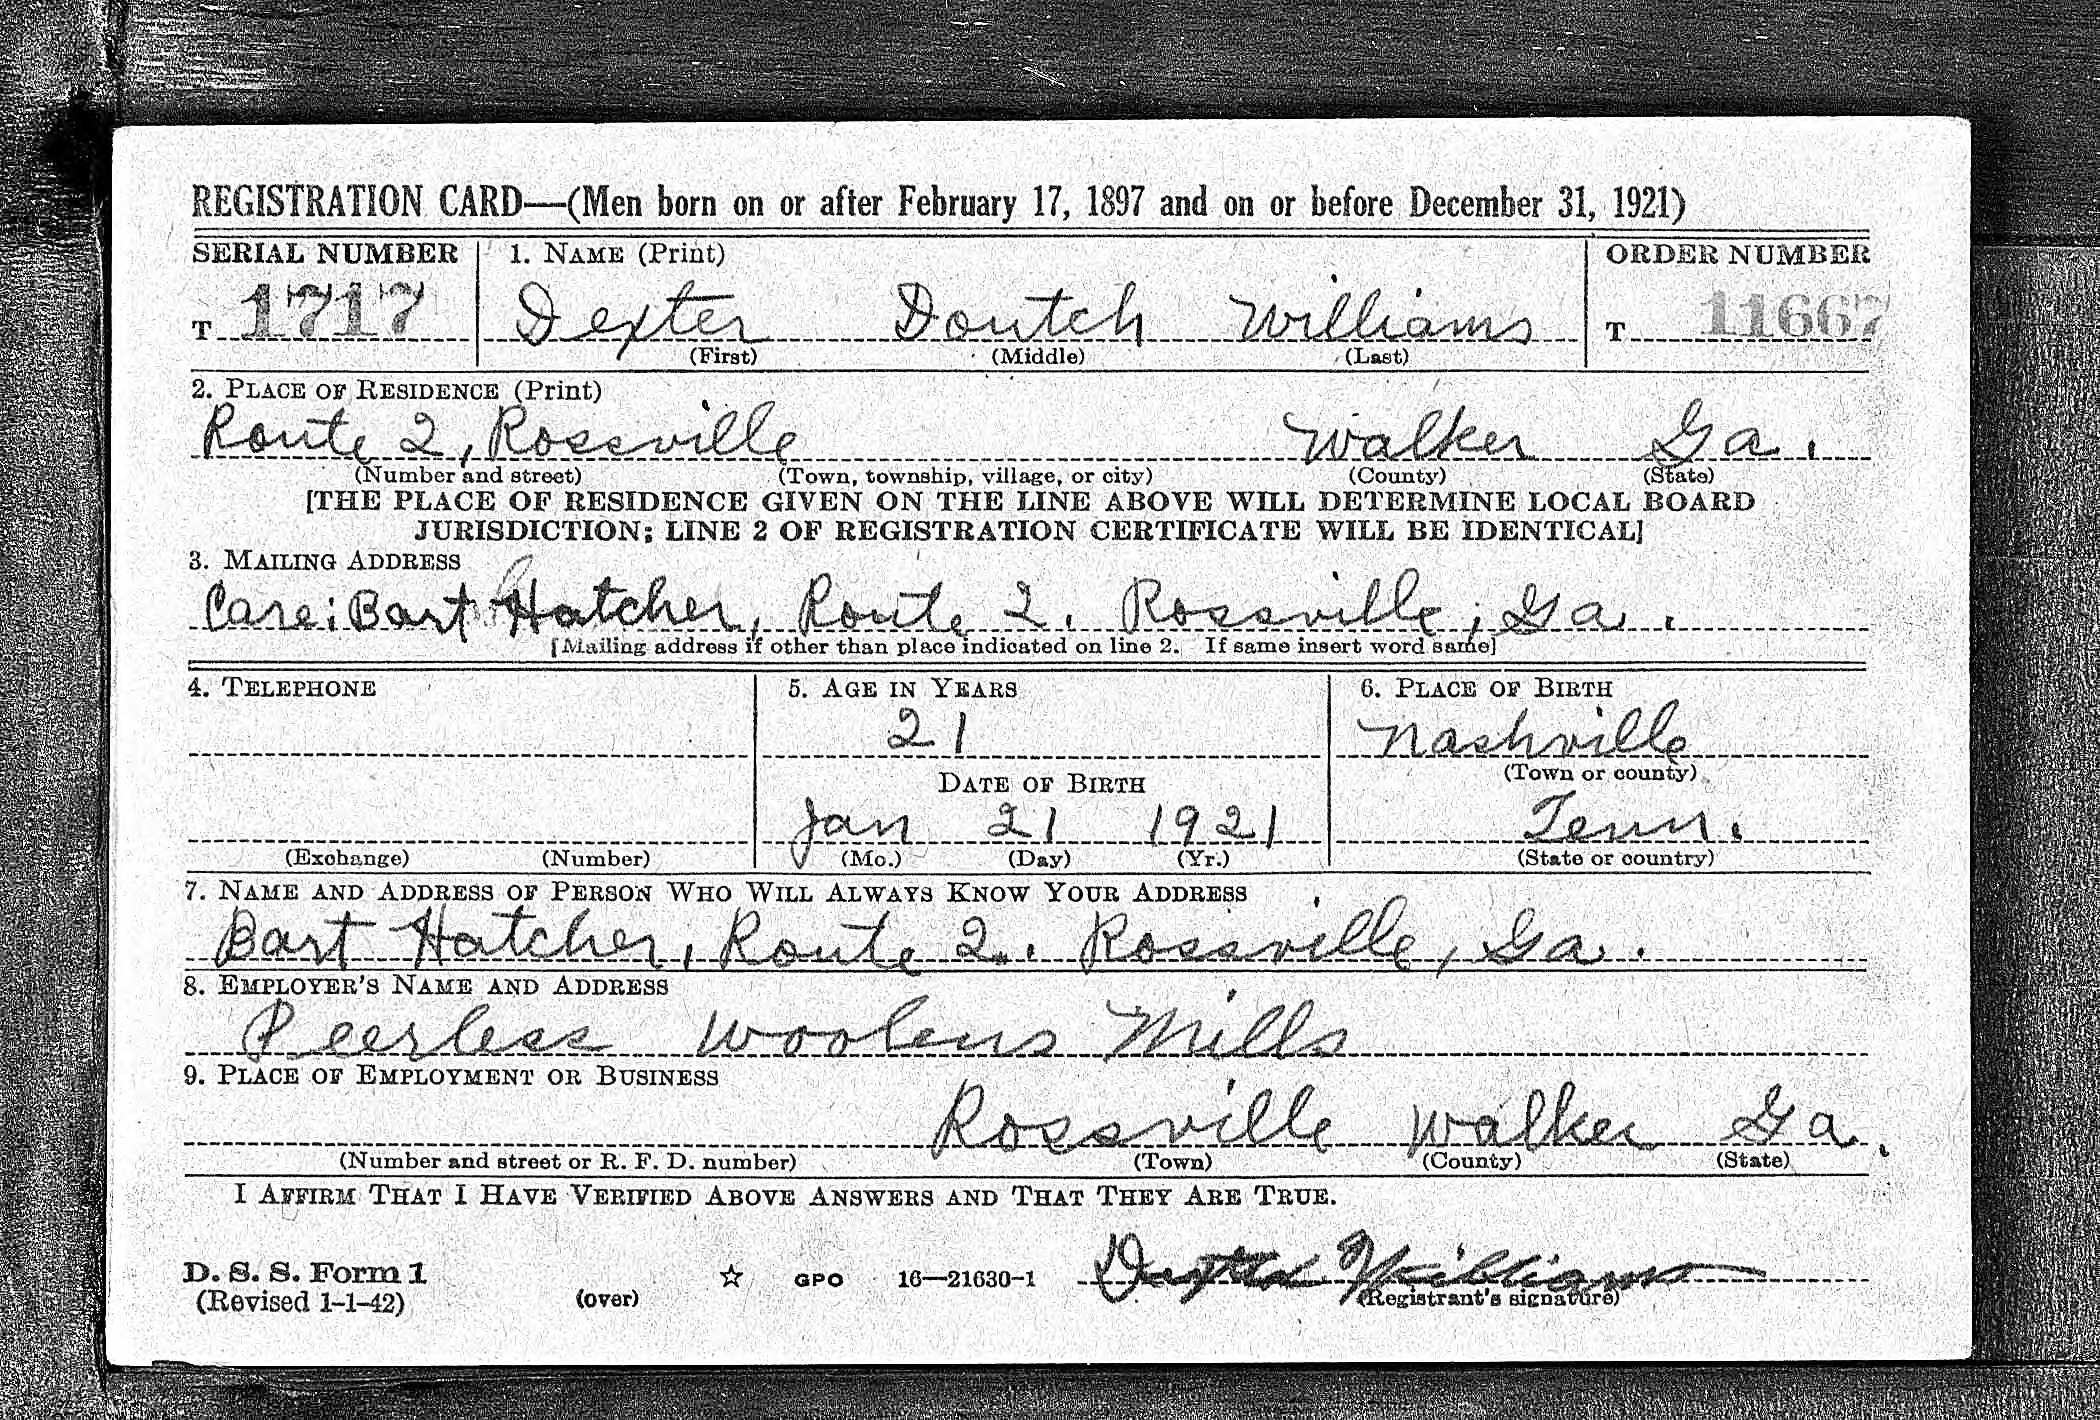 REGISTRATION CARD—(Men born on or after February 17, 1897 and on or before December 31, 1921)
SERIAL NUMBER 1. NAME (Print) ORDER NUMBER
T 1717 Dexter Doutch Williams T 11667
(First) (Middle) (Last)
2. PLACE OF RESIDENCE (Print)
Route 2, Rossville Walker Ga.
(Number and street) (Town, township, village, or city) (County) (State)
[THE PLACE OF RESIDENCE GIVEN ON THE LINE ABOVE WILL DETERMINE LOCAL BOARD
JURISDICTION; LINE 2 OF REGISTRATION CERTIFICATE WILL BE IDENTICAL]
3. MAILING ADDRESS
Care: Bart Hatcher, Route 2. Rossville, Ga.
[Mailing address if other than place indicated on line 2. If same insert word same]
4. TELEPHONE 5. AGE IN YEARS 6. PLACE OF BIRTH
21 Nashville
(Town or county)
DATE OF BIRTH
Jan 21 1921 Tenn.
(Exchange) (Number) (Mo.) (Day) (Yr.) (State or country)
7. NAME AND ADDRESS OF PERSON WHO WILL ALWAYS KNOW YOUR ADDRESS
Bart Hatcher, Route 2.. Rossville, Ga.
8. EMPLOYER'S NAME AND ADDRESS
Peerless Woolens Mills
9. PLACE OF EMPLOYMENT OR BUSINESS
Rossville Walker Ga.
(Number and street or R. F. D. number) (Town) (County) (State)
I AFFIRM THAT I HAVE VERIFIED ABOVE ANSWERS AND THAT THEY ARE TRUE.
D. S. S. Form 1 ☆ GPO 16—21630-1 Dexter Williams
(Revised 1-1-42) (over) (Registrant's signature)